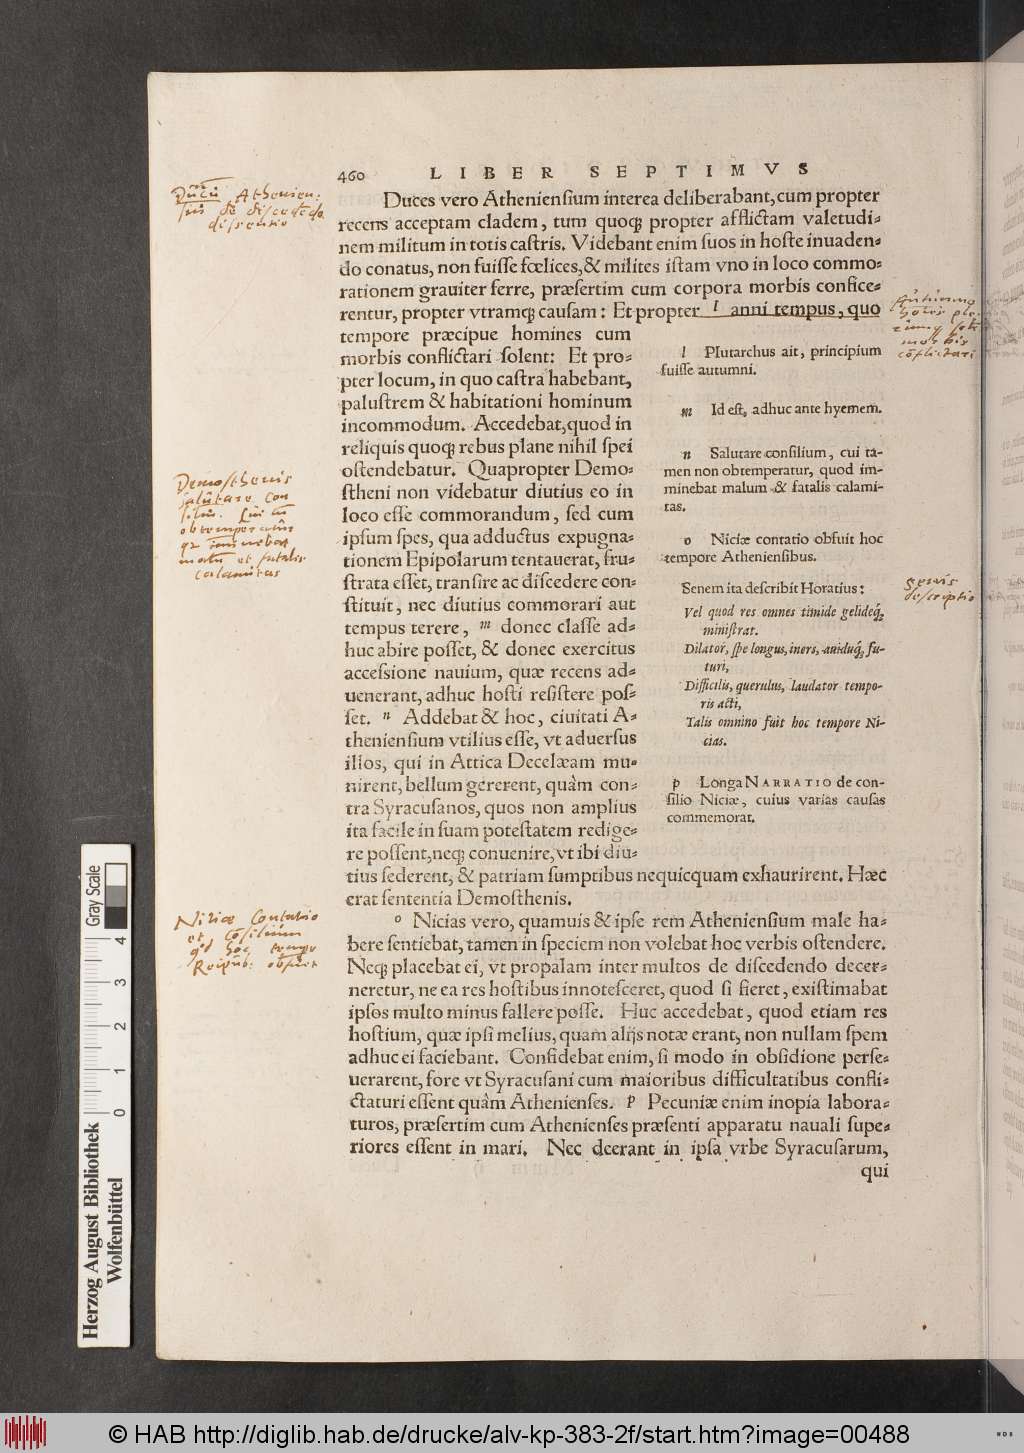 460 LIBER SEPTIMVS
Duces vero Atheniensium interea deliberabant, cum propter
recens acceptam cladem, tum quoq; propter afflictam valetudi=
nem militum in totis castris. Videbant enim suos in hoste inuaden=
do conatus, non fuisse fœlices, & milites istam vno in loco commo=
rationem grauiter ferre, præsertim cum corpora morbis confice=
rentur, propter vtramq; causam: Et propter l anni tempus, quo
tempore præcipue homines cum
morbis conflictari solent: Et pro=
pter locum, in quo castra habebant,
palustrem & habitationi hominum
incommodum. Accedebat, quod in
reliquis quoq; rebus plane nihil spei
ostendebatur. Quapropter Demo=
stheni non videbatur diutius eo in
loco esse commorandum, sed cum
ipsum spes, qua adductus expugna=
tionem Epipolarum tentauerat, fru=
strata esset, transire ac discedere con=
stituit, nec diutius commorari aut
tempus terere, m donec classe ad=
huc abire posset, & donec exercitus
accessione nauium, quæ recens ad=
uenerant, adhuc hosti resistere pos=
set. n Addebat & hoc, ciuitati A=
theniensium vtilius esse, vt aduersus
illos, qui in Attica Decelæam mu=
nirent, bellum gererent, quàm con=
tra Syracusanos, quos non amplius
ita facile in suam potestatem redige=
re possent, neq; conuenire, vt ibi diu=
tius sederent, & patriam sumptibus nequicquam exhaurirent. Hæc
erat sententia Demosthenis.
o Nicias vero, quamuis & ipse rem Atheniensium male ha=
bere sentiebat, tamen in speciem non volebat hoc verbis ostendere.
Neq; placebat ei, vt propalam inter multos de discedendo decer=
neretur, ne ea res hostibus innotesceret, quod si fieret, existimabat
ipsos multo minus fallere posse. Huc accedebat, quod etiam res
hostium, quæ ipsi melius, quam alijs notæ erant, non nullam spem
adhuc ei faciebant. Confidebat enim, si modo in obsidione perse=
uerarent, fore vt Syracusani cum maioribus difficultatibus confli=
ctaturi essent quàm Athenienses. p Pecuniæ enim inopia labora=
turos, præsertim cum Athenienses præsenti apparatu nauali supe=
riores essent in mari. Nec deerant in ipsa vrbe Syracusarum,
qui
l Plutarchus ait, principium
fuisse autumni.
m Id est, adhuc ante hyemem.
n Salutare consilium, cui ta-
men non obtemperatur, quod im-
minebat malum & fatalis calami-
tas.
o Niciæ contatio obfuit hoc
tempore Atheniensibus.
Senem ita describit Horatius:
Vel quod res omnes timide gelideq;
ministrat.
Dilator, spe longus, iners, auiduq; fu-
turi,
Difficilis, querulus, laudator tempo-
ris acti,
Talis omnino fuit hoc tempore Ni-
cias.
p Longa NARRATIO de con-
silio Niciæ, cuius varias causas
commemorat.
Ducū Athenien:
siū de discedēdo
dissensio
Demosthenis
salutare con
siliū. Cui nō
obtemperatur
qz imminebat
malū et fatalis
calamitas
Niciæ Contatio
et Cōsilium
qd hoc tempe
Reipub: obfuit
Autumno
hoīes
morbis
cōflictari
senis
descriptio
Gray Scale
4 3 2 1 0
Herzog August Bibliothek
Wolfenbüttel
© HAB http://diglib.hab.de/drucke/alv-kp-383-2f/start.htm?image=00488